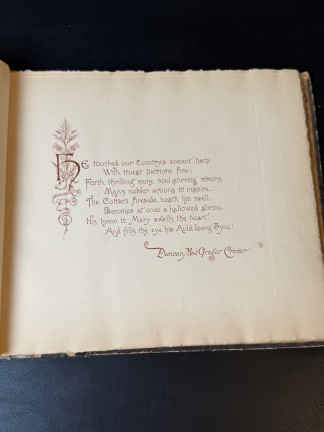 He touched our Country's ancient harp
With truest pathos fine;
Forth thrilling rang, and glowing strong,
Many nobler among it
The Cotters fireside, neath his spell,
Becomes at once a hallowed shrine.
His hymn to Mary swells the heart
And fills the eye his Auld Lang Syne.
Duncan MacGregor Crerar